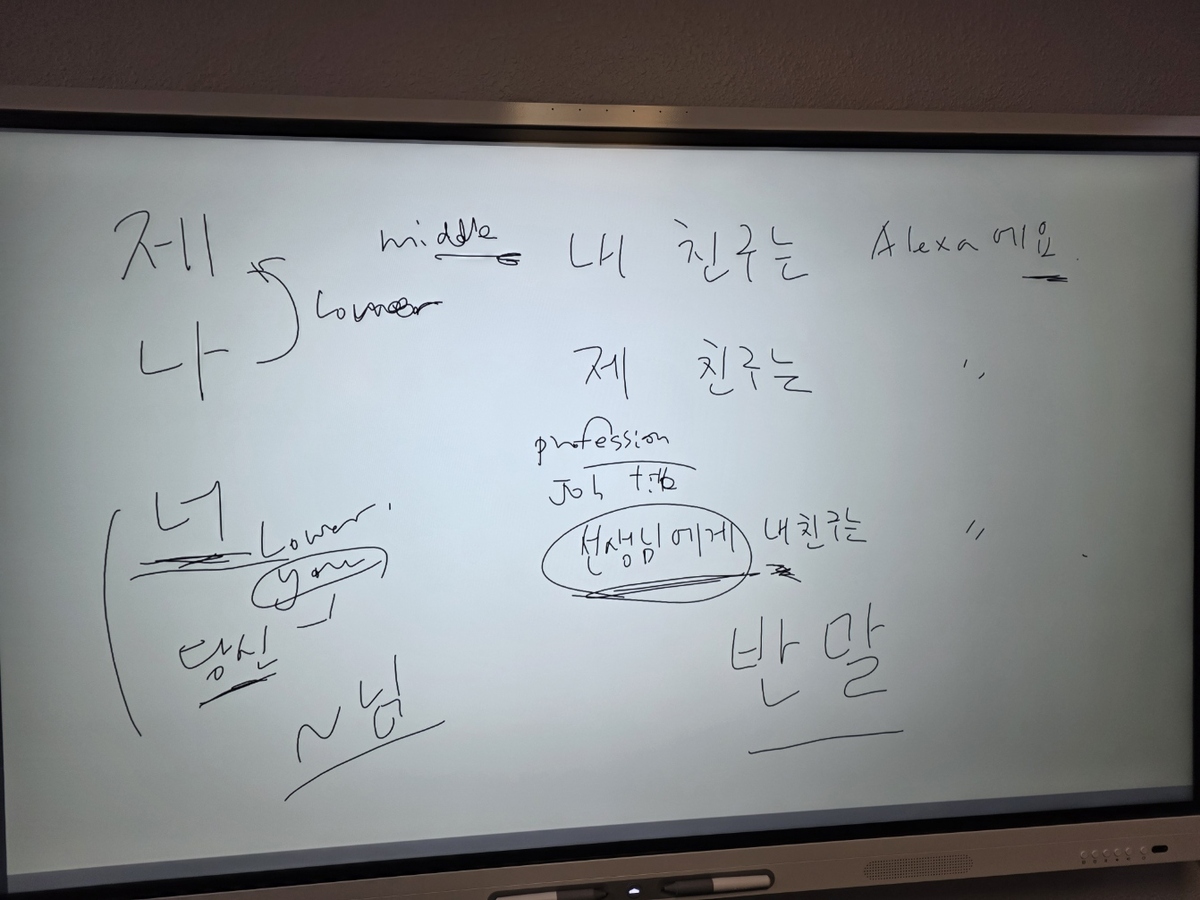 제 middle 내 친구는 Alexa에요.
Lower
나 제 친구는 〃
profession
Job title
너 Lower. 선생님에게 내 친구는 〃
you
당신
~님 반말